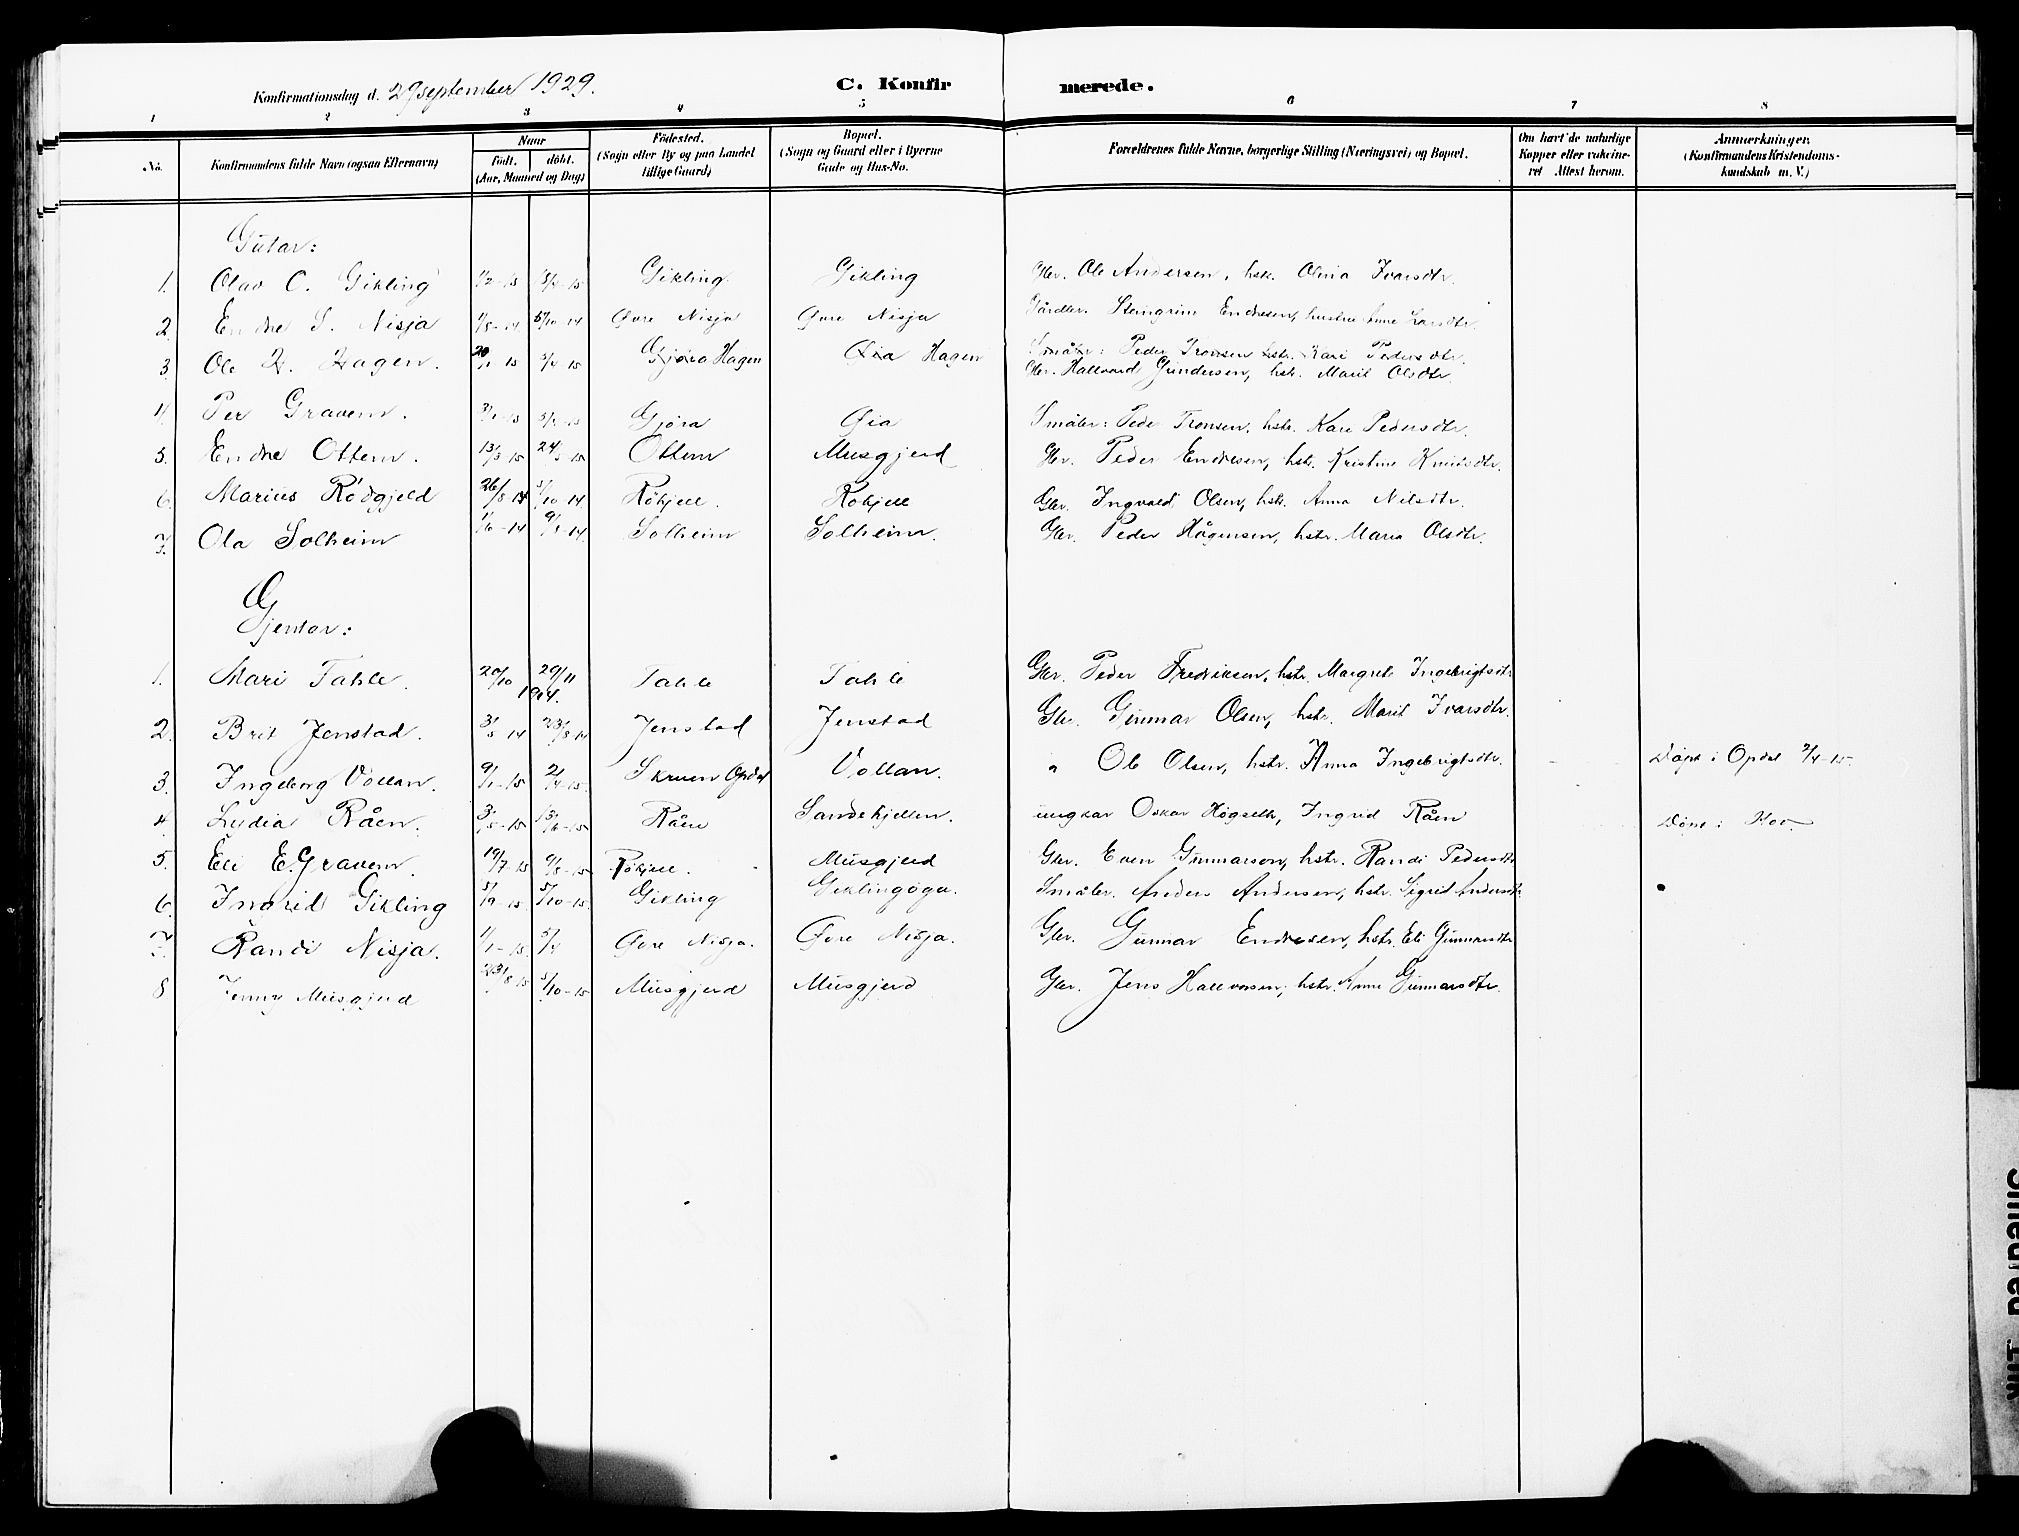 Konfirmationsdag d. 29 september 1929. C. Konfir merede.
1 2 3 4 5 6 7 8
No. Konfirmandens fulde Navn (ogsaa Efternavn) Naar født. døbt. (Aar, Maaned og Dag) Fødested. (Sogn eller By og paa Landet tillige Gaard) Bopæl. (Sogn og Gaard eller i Byerne Gade og Hus-No. Forældrenes fulde Navne, borgerlige Stilling (Næringsvei) og Bopæl. Om havt de naturlige Kopper eller vakcineret. Attest herom. Anmærkninger. (Konfirmandens Kristendomskundskab m. V.)
Gutar:
1. Olav O. Gikling 1/2-15 5/4-15 Gikling Gikling Gbr. Ole Andersen, hstr. Olina Ivarsdtr.
2. Endre S. Nisja 1/8-14 5/10 14 Øvre Nisja Øvre Nisja Gårdbr. Steingrim Endresen, hustru Anne Larsdtr.
3. Ole H. Hagen 20/1 15 5/4 15 Gjøra Hagen Øia Hagen Småbr: Peder Tronsen hstr. Kari Pedersdtr.
Gbr. Hallvard Gundersen, hstr. Marit Olsdtr.
4. Per Gravem. Gjøra Øia Småbr: Peder Tronsen, hstr. Kari Pedersdtr.
5. Endre Ottem. 13/3 15 24/5-15 Ottem Musgjerd Gbr. Peder Endresen, hstr. Kristine Knutsdtr.
6. Marius Rødgjeld 26/8 14 5/10-14 Røkjell. Røkjell Gbr. Ingvald Olsen, hstr. Anna Nilsdtr.
7. Ola Solheim 1/6-14 Solheim Solheim. Gbr. Peder Hågensen, hstr. Maria Olsdtr.
Gjentor:
1. Mari Tahle. 20/10 29/11 1914. Tahle Tahle Gbr. Peder Fredriksen, hstr. Margrete Ingebrigtsdtr
2. Brit Jenstad. 3/5 14 23/8-14 Jenstad Jenstad Gbr. Gunnar Olsen, hstr. Marit Ivarsdtr.
3. Ingeborg Vollan. 9/1-15 2/4-15. Skruen Opdal Vollan. " Ole Olsen, hstr. Anna Ingebrigtsdtr. Døpt i Opdal 2/4-15.
4. Lydia Råen. 3/5-15 13/6-15 Råen Sandekjellen. ungkar Oskar Høgseth, Ingrid Råen Døpt i Hov
5. Eli E. Gravem. 19/7-15 9/8-15 Røkjell. Musgjerd Gbr. Even Gunnarson, hstr. Randi Pedersdtr
6. Ingrid Gikling 5/9-15. 5/10-15. Gikling Giklingøya. Småbr. Anders Andersen, hstr. Sigrid Andersdtr.
7. Randi Nisja. 1/1-15. 5/4 Øvre Nisja. Øvre Nisja. Gbr. Gunnar Endresen, hstr. Eli Gunnarsdtr
8 Jenny Musgjerd 23/8-15 5/10-15 Musgjerd Musgjerd Gbr. Jens Hallvorsen, hstr. Anne Gunnarsdtr.